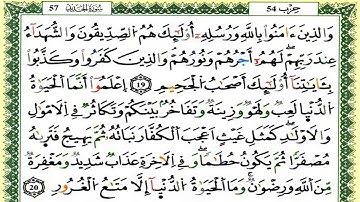 57 سُورَةُ الْحَدِيدِ حِزْب 54
وَالَّذِينَ ءَامَنُوا بِاللَّهِ وَرُسُلِهِ أُولَٰئِكَ هُمُ الصِّدِّيقُونَ وَالشُّهَدَاءُ
عِندَ رَبِّهِمْ لَهُمْ أَجْرُهُمْ وَنُورُهُمْ وَالَّذِينَ كَفَرُوا وَكَذَّبُوا
بِـَٔايَٰتِنَا أُولَٰئِكَ أَصْحَٰبُ الْجَحِيمِ 19 اعْلَمُوا أَنَّمَا الْحَيَوٰةُ
الدُّنْيَا لَعِبٌ وَلَهْوٌ وَزِينَةٌ وَتَفَاخُرٌ بَيْنَكُمْ وَتَكَاثُرٌ فِي الْأَمْوَٰلِ
وَالْأَوْلَٰدِ كَمَثَلِ غَيْثٍ أَعْجَبَ الْكُفَّارَ نَبَاتُهُ ثُمَّ يَهِيجُ فَتَرَىٰهُ
مُصْفَرًّا ثُمَّ يَكُونُ حُطَٰمًا وَفِي الْآخِرَةِ عَذَابٌ شَدِيدٌ وَمَغْفِرَةٌ
مِّنَ اللَّهِ وَرِضْوَٰنٌ وَمَا الْحَيَوٰةُ الدُّنْيَا إِلَّا مَتَٰعُ الْغُرُورِ 20